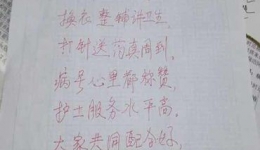 换衣整铺讲卫生
打针送药真周到,
病号心里都称赞
护士服务水平高,
大家共同配合好,